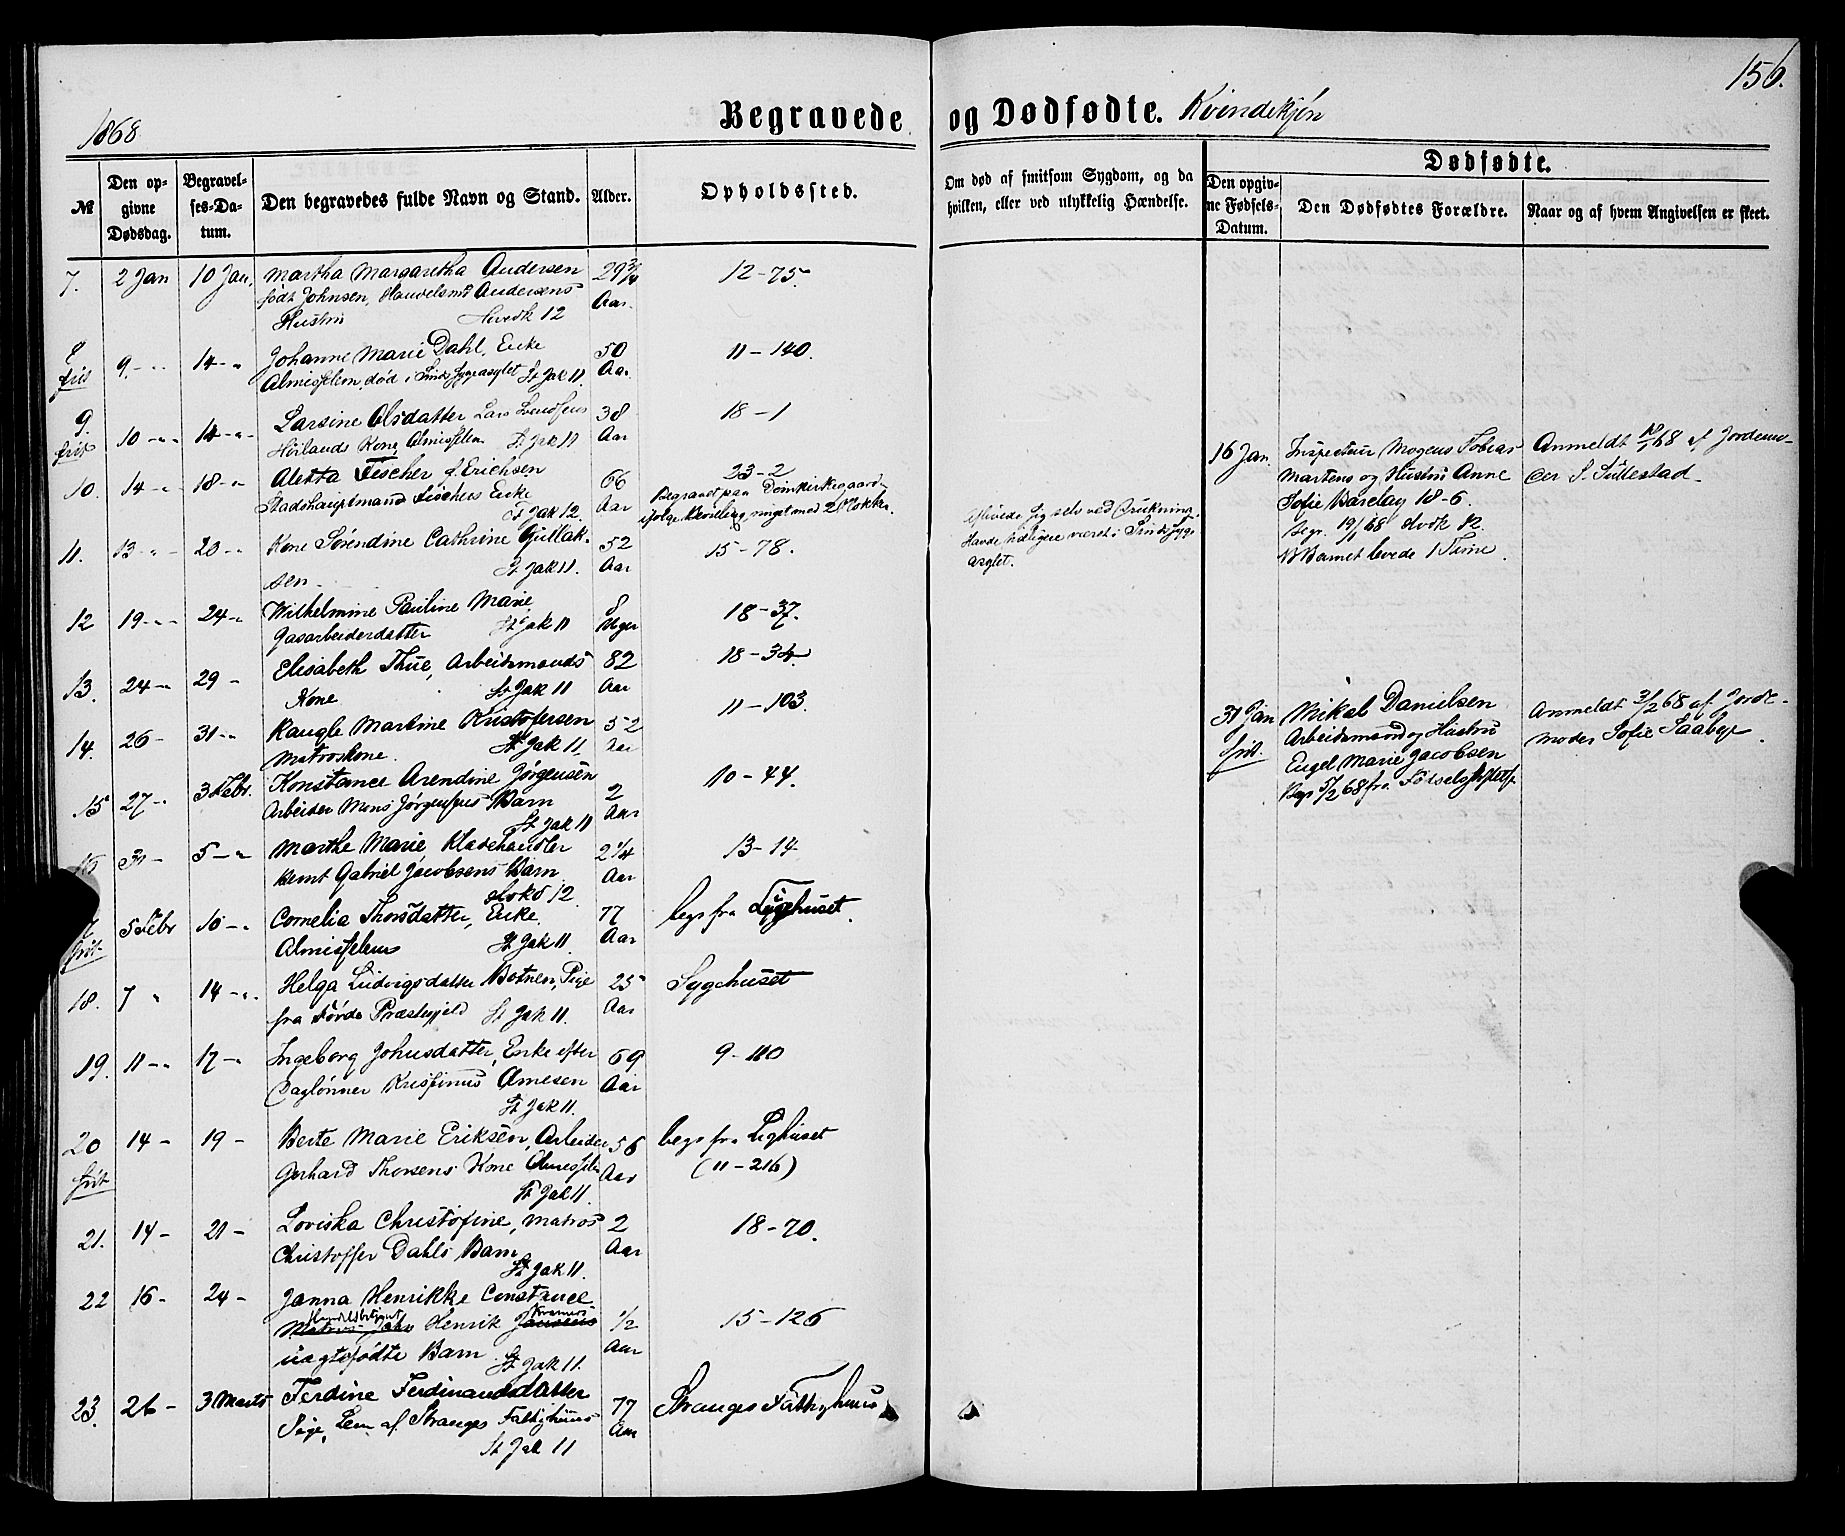 156.
1868
Begravede og Dødfødte. Kvindekjön
№
Den opgivne Dødsdag.
Begravelses-Datum.
Den begravedes fulde Navn og Stand.
Alder.
Opholdssted.
Om død af smitsom Sygdom, og da
hvilken, eller ved ulykkelig Hændelse.
Dødfødte.
Den opgivne Fødsels-Datum.
Den Dødfødtes Forældre.
Naar og af hvem Angivelsen er skeet.
7. 2 Jan 10 Jan. Martha Margaretha Andersen 29 3/4 12-75.
født Johnsen, Andersens Aar.
Hustru 12
8 9 - " 14 - " Johanne Marie Dahl, Enke 50 11-140.
frit Almisselem, død i Sindssygeasylet St Jak 11. Aar
9. 10 - " 14 - " Larsine Olsdatter Lars Svendsens 38 18-1
frit Kone, Almisselem St Jak 11 Aar
10. 14 - " 18 - " Aletta Fischer f. Erichsen 66 23-2
Stadshauptmand Fischers Enke Aar Begravet paa Domkirkegaard
St Jak 12. ifølge Bevilling, ringet med 2 Klokker.
11. 13 - " 20 - " Kone Sørendine Cathrine Gullak- 52 15-78.
sen. St Jak 11. Aar
Aflivede sig selv ved Drukning.
Havde tidligere været i Sindssyge
asylet.
12 19 - " 24 - " Wilhelmine Pauline Marie, 8 18-37.
Gasarbeiderdatter St Jak 11 Uger
13. 24 - " 29 - Elisabeth Thue, Arbeidsmands 82 18-34.
Kone St Jak 11 Aar
14. 26 - 31 - " Raugle Martine Kristofersen 52 11-103.
Matroskone. St Jak 11 Aar
15 27 - " 3 Febr. Konstance Arendine Jørgensen 2 10-44.
Arbeider Mons Jørgensens Barn Aar
St Jak 11
16 31 - 5 - " Marthe Marie Kladehandler 2 1/4 13-14
Bernt Gabriel Jacobsens Barn Aar
12
17 5 Febr 10 - " Cornelia Thorsdatter, Enke 77 begr fra Sygehuset.
frit Almisselem St Jak 11 Aar
18. 7 " 14 - " Helga Ludvigsdatter Botnen, Pige 25 Sygehuset
fra Førde Præstegjeld St Jak 11. Aar
19. 11 - " 17 - " Ingeborg Johnsdatter, Enke efter 69 9-110
Daglønner Kristinus Arnesen Aar
St Jak 11.
20 14 - 19 - Berte Marie Eriksen, Arbeider 56 begr fra Lighuset
frit Gerhard Thorsens Kone Almisselem Aar (11-216)
St Jak 11.
21. 14 - 21 - Loviska Christofine, Matros 2 18-70.
Christoffer Dahls Barn Aar
St Jak 11.
22 16 - 24 - Janna Henrikke Constance
Henrik Jansens 1/2 15-126
uægtefødte Barn St Jak 11. Aar
23. 26 - 3 Marts Ferdine Ferdinandsdatter 77 Stranges Fattighuus
Pige, Lem af Stranges Fattighuus Aar
St Jak 11
16 Jan. Inspecteur Mogens Tobias Anmeldt 20/1 68 af Jordemo-
Martens og Hustru Anne der S. Sullestad.
Sofie Barclay 18-6.
Begr. 19/1 68 Domk 12.
NB Barnet levede 1 Time.
31 Jan Mikal Danielsen Anmeldt 3/2 68 af Jorde-
frit. Arbeidsmand og Hustru moder Sofie Saabye.
Engel Marie Jacobsen
Begr 5/2 68 fra Fødselsstiftelse